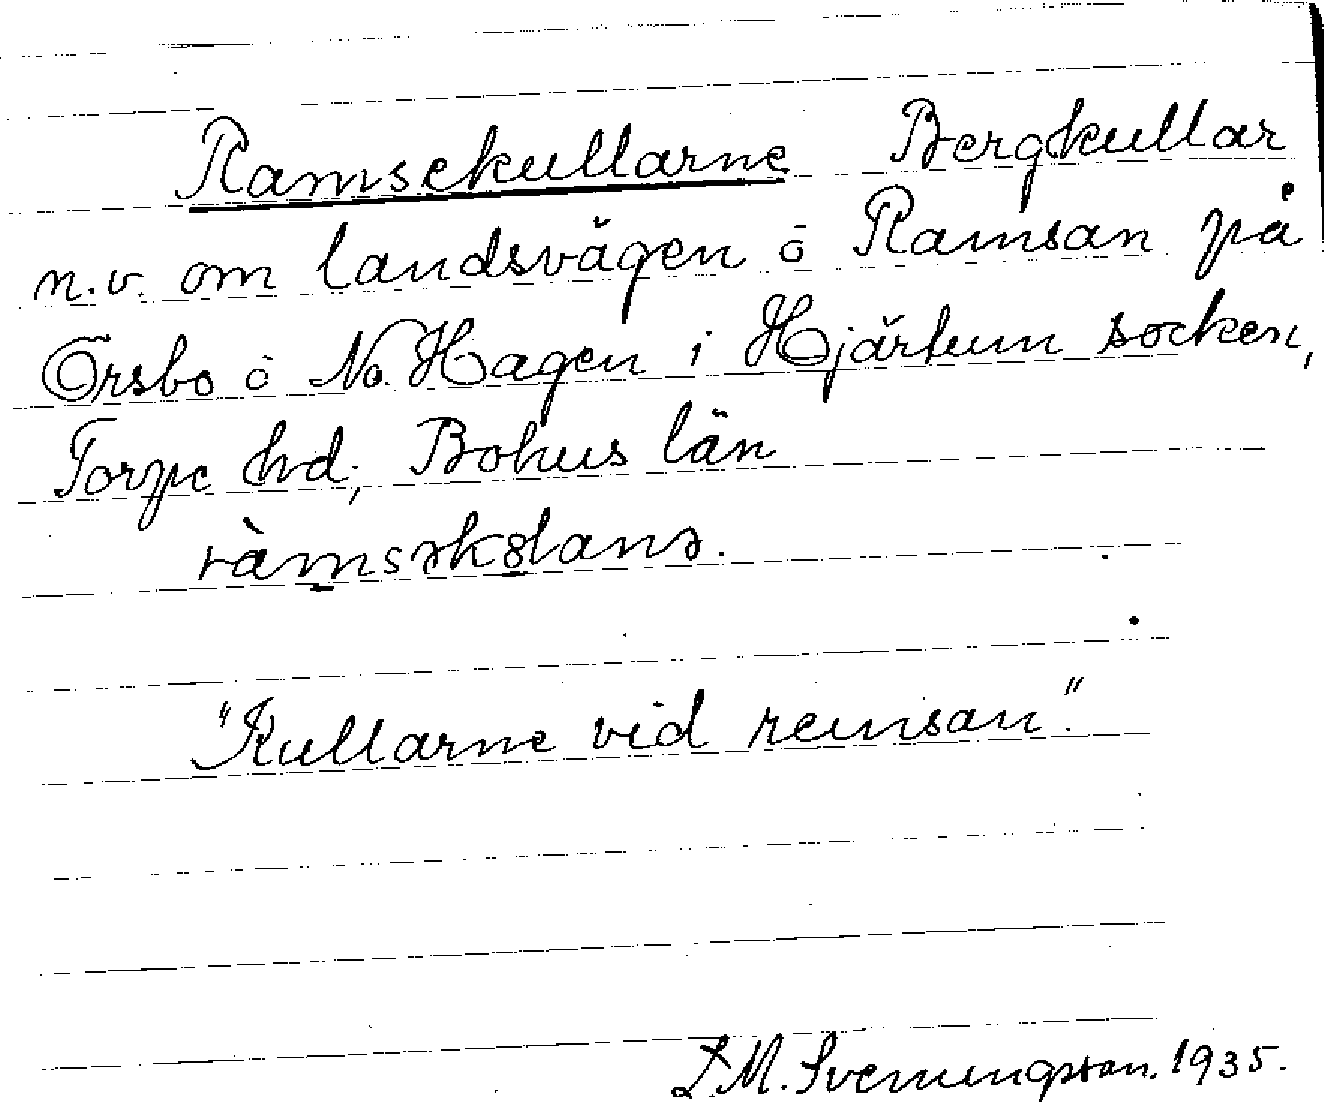 Ramsekullarne Bergkullar
n.v. om landsvägen o Ramsan på
Örsbo o No. Hagen i Hjärtum socken,
Torpe hd, Bohus län
"Kullarne vid remsan".
L M. Svenungsson. 1935.